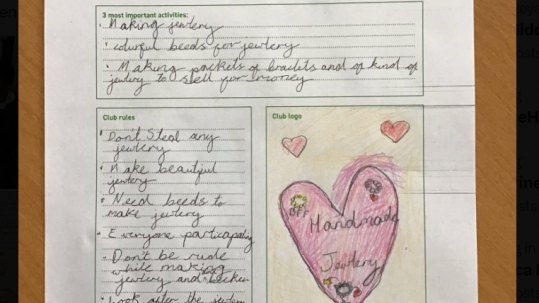 3 most important activities:
· Making jewlery
· colurful beeds for jewlery
· Making packets of braclits and of kind of
jewlery to stell for money
Club rules
· Dont Steal any
jewlery
· Make beautiful
jewlery
· Need beeds to
make jewlery
· Everyone
· Don't be rude
while making
jewlery and
· Look after the
Club logo
Handmade
Jewlery